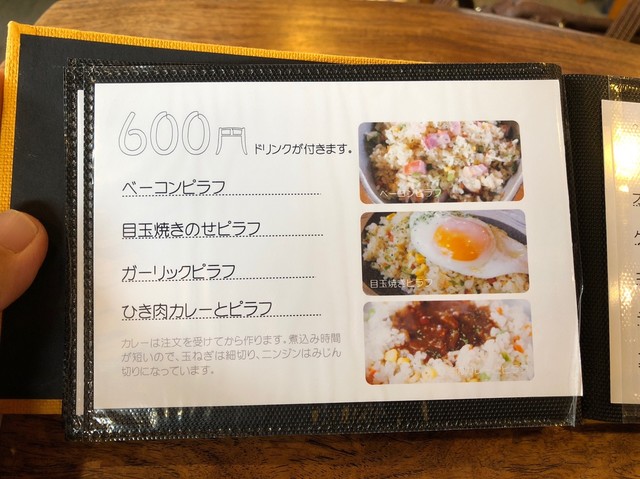 600円 ドリンクが付きます。
ベーコンピラフ
目玉焼きのせピラフ
ガーリックピラフ
ひき肉カレーとピラフ
カレーは注文を受けてから作ります。煮込み時間
が短いので、玉ねぎは細切り、ニンジンはみじん
切りになっています。
ベーコンピラフ
目玉焼きピラフ